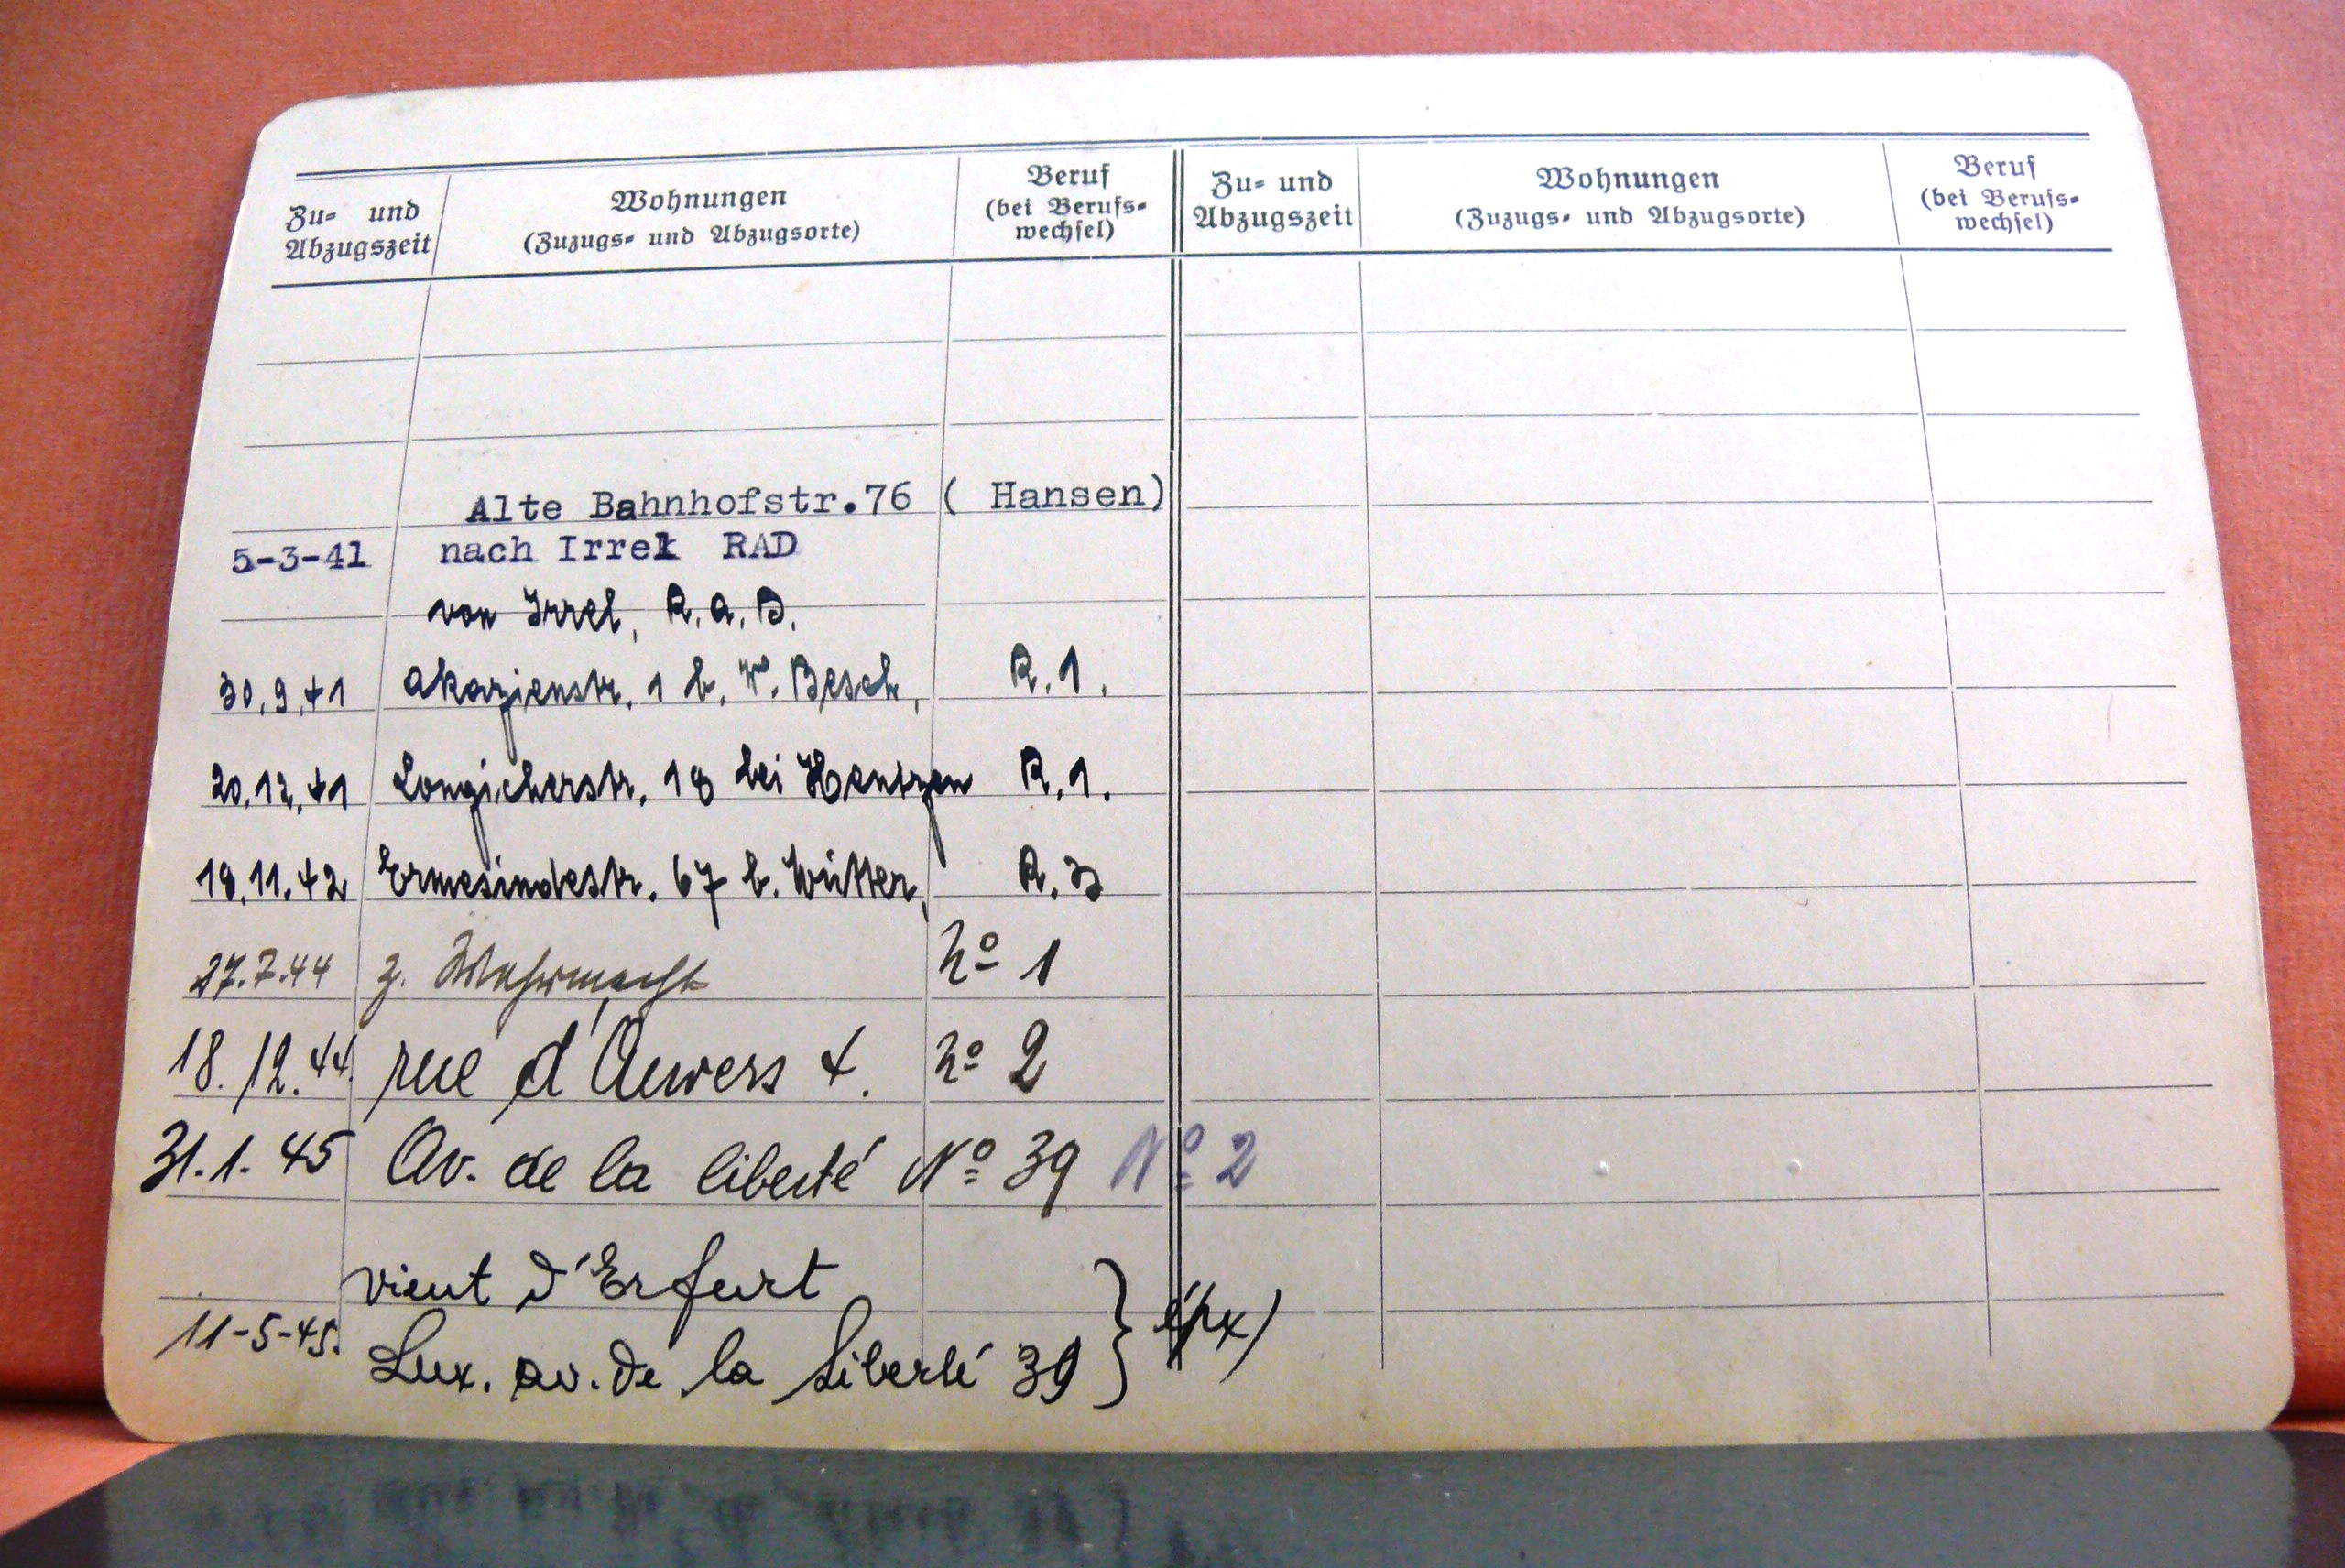 Zu= und Abzugszeit
Wohnungen
(Zuzugs= und Abzugsorte)
Beruf
(bei Berufs=
wechsel)
Zu= und
Abzugszeit
Wohnungen
(Zuzugs= und Abzugsorte)
Beruf
(bei Berufs=
wechsel)
Alte Bahnhofstr.76 ( Hansen)
5-3-41 nach Irrel RAD
von Irrel, R.A.D.
30.9.41 Akazienstr. 1 b. W. Besch, R.1.
20.12.41 Longicherstr. 18 bei Hentzen R.1.
18.11.42 Ermesindestr. 67 b. Wutter, R.3
27.7.44 z. Wehrmacht No 1
18.12.44. rue d'Anvers 4. no 2
31.1.45 Av. de la liberté No 39 No 2
vient d'Erfurt
11-5-45. Lux. av. de la Liberté 39 }